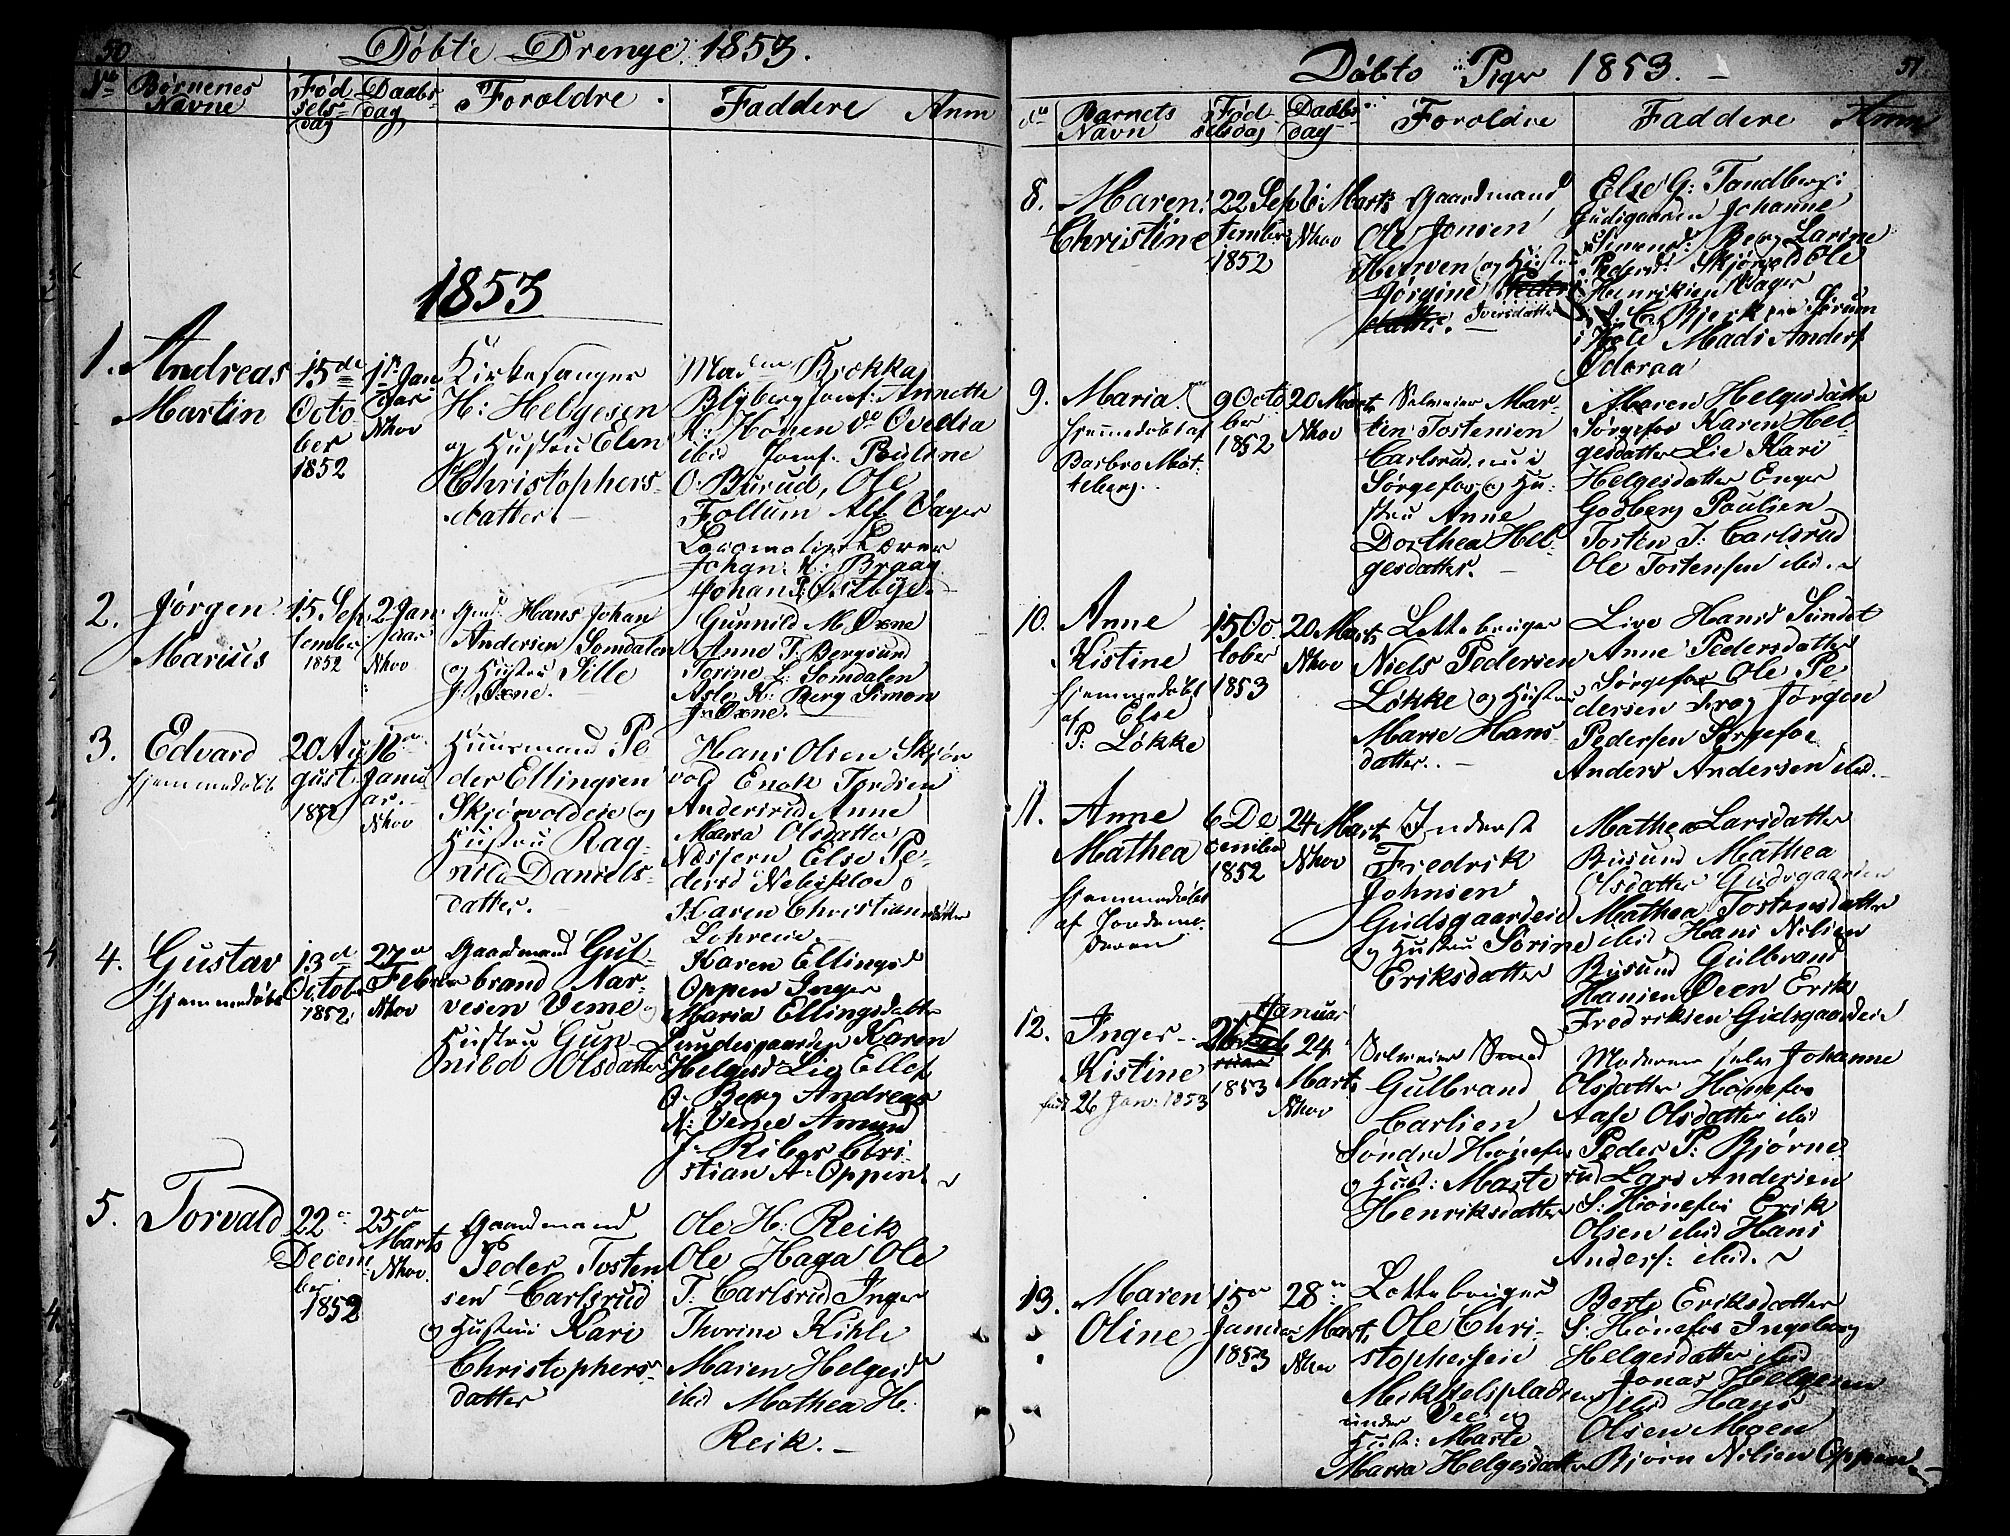 50
Døbte Drenge 1853.
No Børnenes Navne
Fødselsdag
Daabsdag
Foroldre.
Faddere
Anm
1853
1.
Andreas
Martin
15de
October
1852
1st Januari
Nhov
Kirkesanger
H: Helgesen
og Hustru Elen
Christophers-
datter.
Madm Brokkaj
Blyberg Jomf: Annette
K: Hønen do Ovedia
ibid Jomf. Pauline
O: Burud, Ole
Follum Alf Vager
Johan: K: Braag
Johan P. Østbye.
2.
Jørgen
Marius
15 Sep
tember
1852
2 Jan
uar
Nhov
Gmd. Hans Johan
Andersen Somdalen
og Hustru Sille
J. Oxne.
Gunnild M. Oxne
Anne T. Bergsund
Torine L. Somdalen
Asle K: Berg Simon
J. Oxne.
3.
Edvard
hjemmedøbt
20 Au
gust
1852
16de
Janu
ar.
Nhov
Huusmand Pe
der Ellingsen
Skjørvoldeie og
Hustru Rag-
nild Daniels-
datter.
Hans Olsen Skjør
vold Enok Tordsen
Andersrud Anne
Maria Olsdatter
Næsjern Else Pe-
dersd
Karen Christiansdatter
Lohreeie
4.
Gustav
hjemmedøbt
13d
October
1852
27de
Febr
Nhov
Gaardmand Gul-
brand Nar-
vesen Veme og
Hustru Gun-
nild Olsdatter
Karen Ellingsd
Oppen Inger
Maria Ellingsdatter
Lundesgaarden Karen
Helgesd Lie Ellef
O: Berg Andreas
N: Veme Amund
J. Riber Chri-
stian A: Oppen.
5.
Torvald
22de
Decem
ber
1852
25de
Marts
Nhov.
Gaardmand
Peder Tosten
sen Carlsrud
og Hustru Kari
Christophers-
datter
Ole H. Reik
Ole Haga Ole
T. Carlsrud Inger
Thorine Kihle
Maren Helgesd
ibid Mathea H.
Reik.
51
Døbte Piger 1853.
No Barnets Navn
Fødselsdag
Daabsdag
Foroldre
Faddere
Anm
8.
Maren
Christine
22 Sep
tember
1852
6 Marts
Nhov
Gaardmand
Ole Jonsen
Hverven og Hustru
Jørgine Peders
datter. Iversdatter
Else G: Tandberg:
Gudsgaarden Johanne
Simensd: Berg Larine
Pedersd: Skjørvold Ole
Henriksen Vager
Hole Mads Anders
9.
Maria
hjemmedøbt af
Barbro Møt
teberg.
9 Octo
ber
1852
20 Marts
Nhov
Selveier Mar-
ten Tostensen
Carlsrud nu i
Sørgefos og Hu-
stru Anne
Dorthea Hel-
gesdatter.
Maren Helgesdatter
Sørgefos Karen Hel-
gesdatter Lie Kari
Helgesdatter Enger
Godberg Poulsen
Tosten T. Carlsrud
Ole Tostensen ibid.
10.
Anne
Kistine
hjemmedøbt
af Else
P. Løkke
15 Oc
tober
1853
20 Marts
Nhov
Lottebruger
Niels Pedersen
Løkke og Hustru
Marie Hans-
datter.
Live Hansd Sundet
Anne Pedersdatter
Sørgefos Ole Pe
dersen Frog Jørgen
Pedersen Sørgefos
Anders Andersen ibid.
11.
Anne
Mathea
hjemmedøbt
af Jordemo-
deren
6 De
cember
1852
24 Marts
Nhov
Inderst
Fredrik
Johnsen
Gudsgaardseie
og Hustru Sørine
Eriksdatter
Mathea Larsdatter
Busund Mathea
Olsdatter Gudsgaarden
Mathea Tostensdatter
ibid Hans Nilsen
Busund Gulbrand
Hansen Oeen Erik
Fredriksen Gudsgaardeie
12.
Inger
Kistine
født 26 Jan: 1853
Januar
26
1853
24
Marts
Nhov
Selveier Smed
Gulbrand
Carlsen
Søndre Hønefos
og Hust: Marte
Henriksdatter
Moderen selv Johanne
Olsdatter Hønefos
Aase Olsdatter ibid
Peder P: Bjørne
rud Lars Andersen
S. Hønefos Erik
Olsen ibid Hans
Anders: ibid.
13.
Maren
Oline
15de
Januar
1853
28de
Marts
Nhov
Lottebruger
Ole Chri-
stophersen
Mikkelspladsen
under Vee og
Hust: Marte
Maria Helgesdatter
Berte Eriksdatter
S. Hønefos Ingeborg
Helgesdatter ibid
Jonas Helgesen
ibid Hans
Olsen Moen
Bjørn Nilsen Oppen